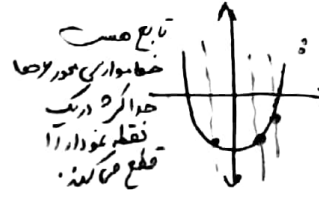 تابع هست
خط موازی محور yها
حداکثر در یک
نقطه نمودار را
قطع می کند.